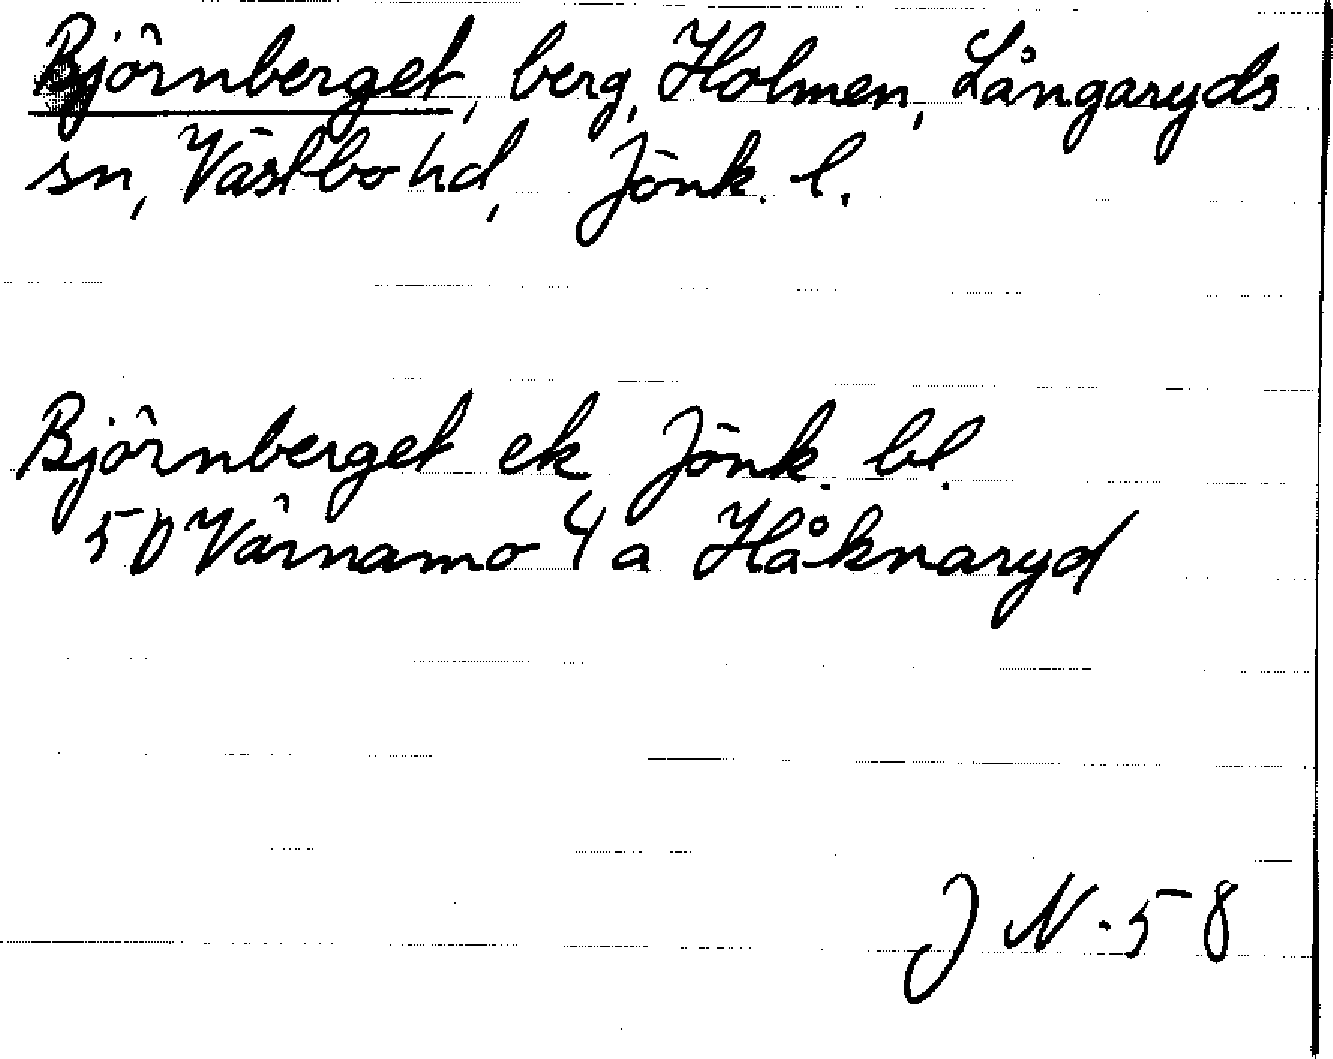 Björnberget, berg, Holmen, Långaryds
sn, Västbo hd, Jönk. l.
Björnberget ek Jönk. bl.
5D Värnamo 4 a Håknaryd
J N-58